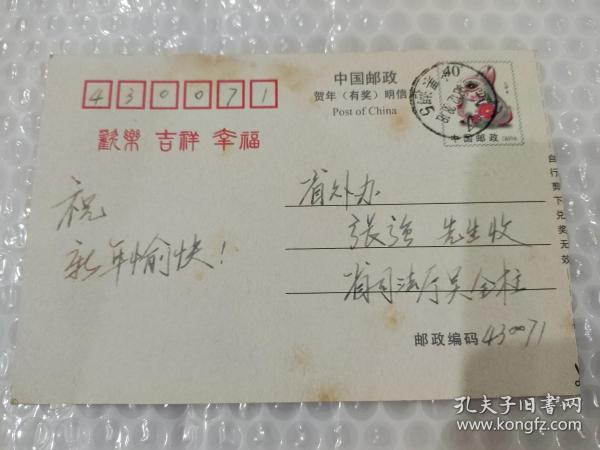 430071
歡樂 吉祥 幸福
中国邮政
贺年（有奖）明信
Post of China
40
中国邮政
自行剪下兑奖无效
祝
新年愉快！
省外办
张强 先生收
省司法厅吴全柱
邮政编码430071
孔夫子旧书网
www.kongfz.com